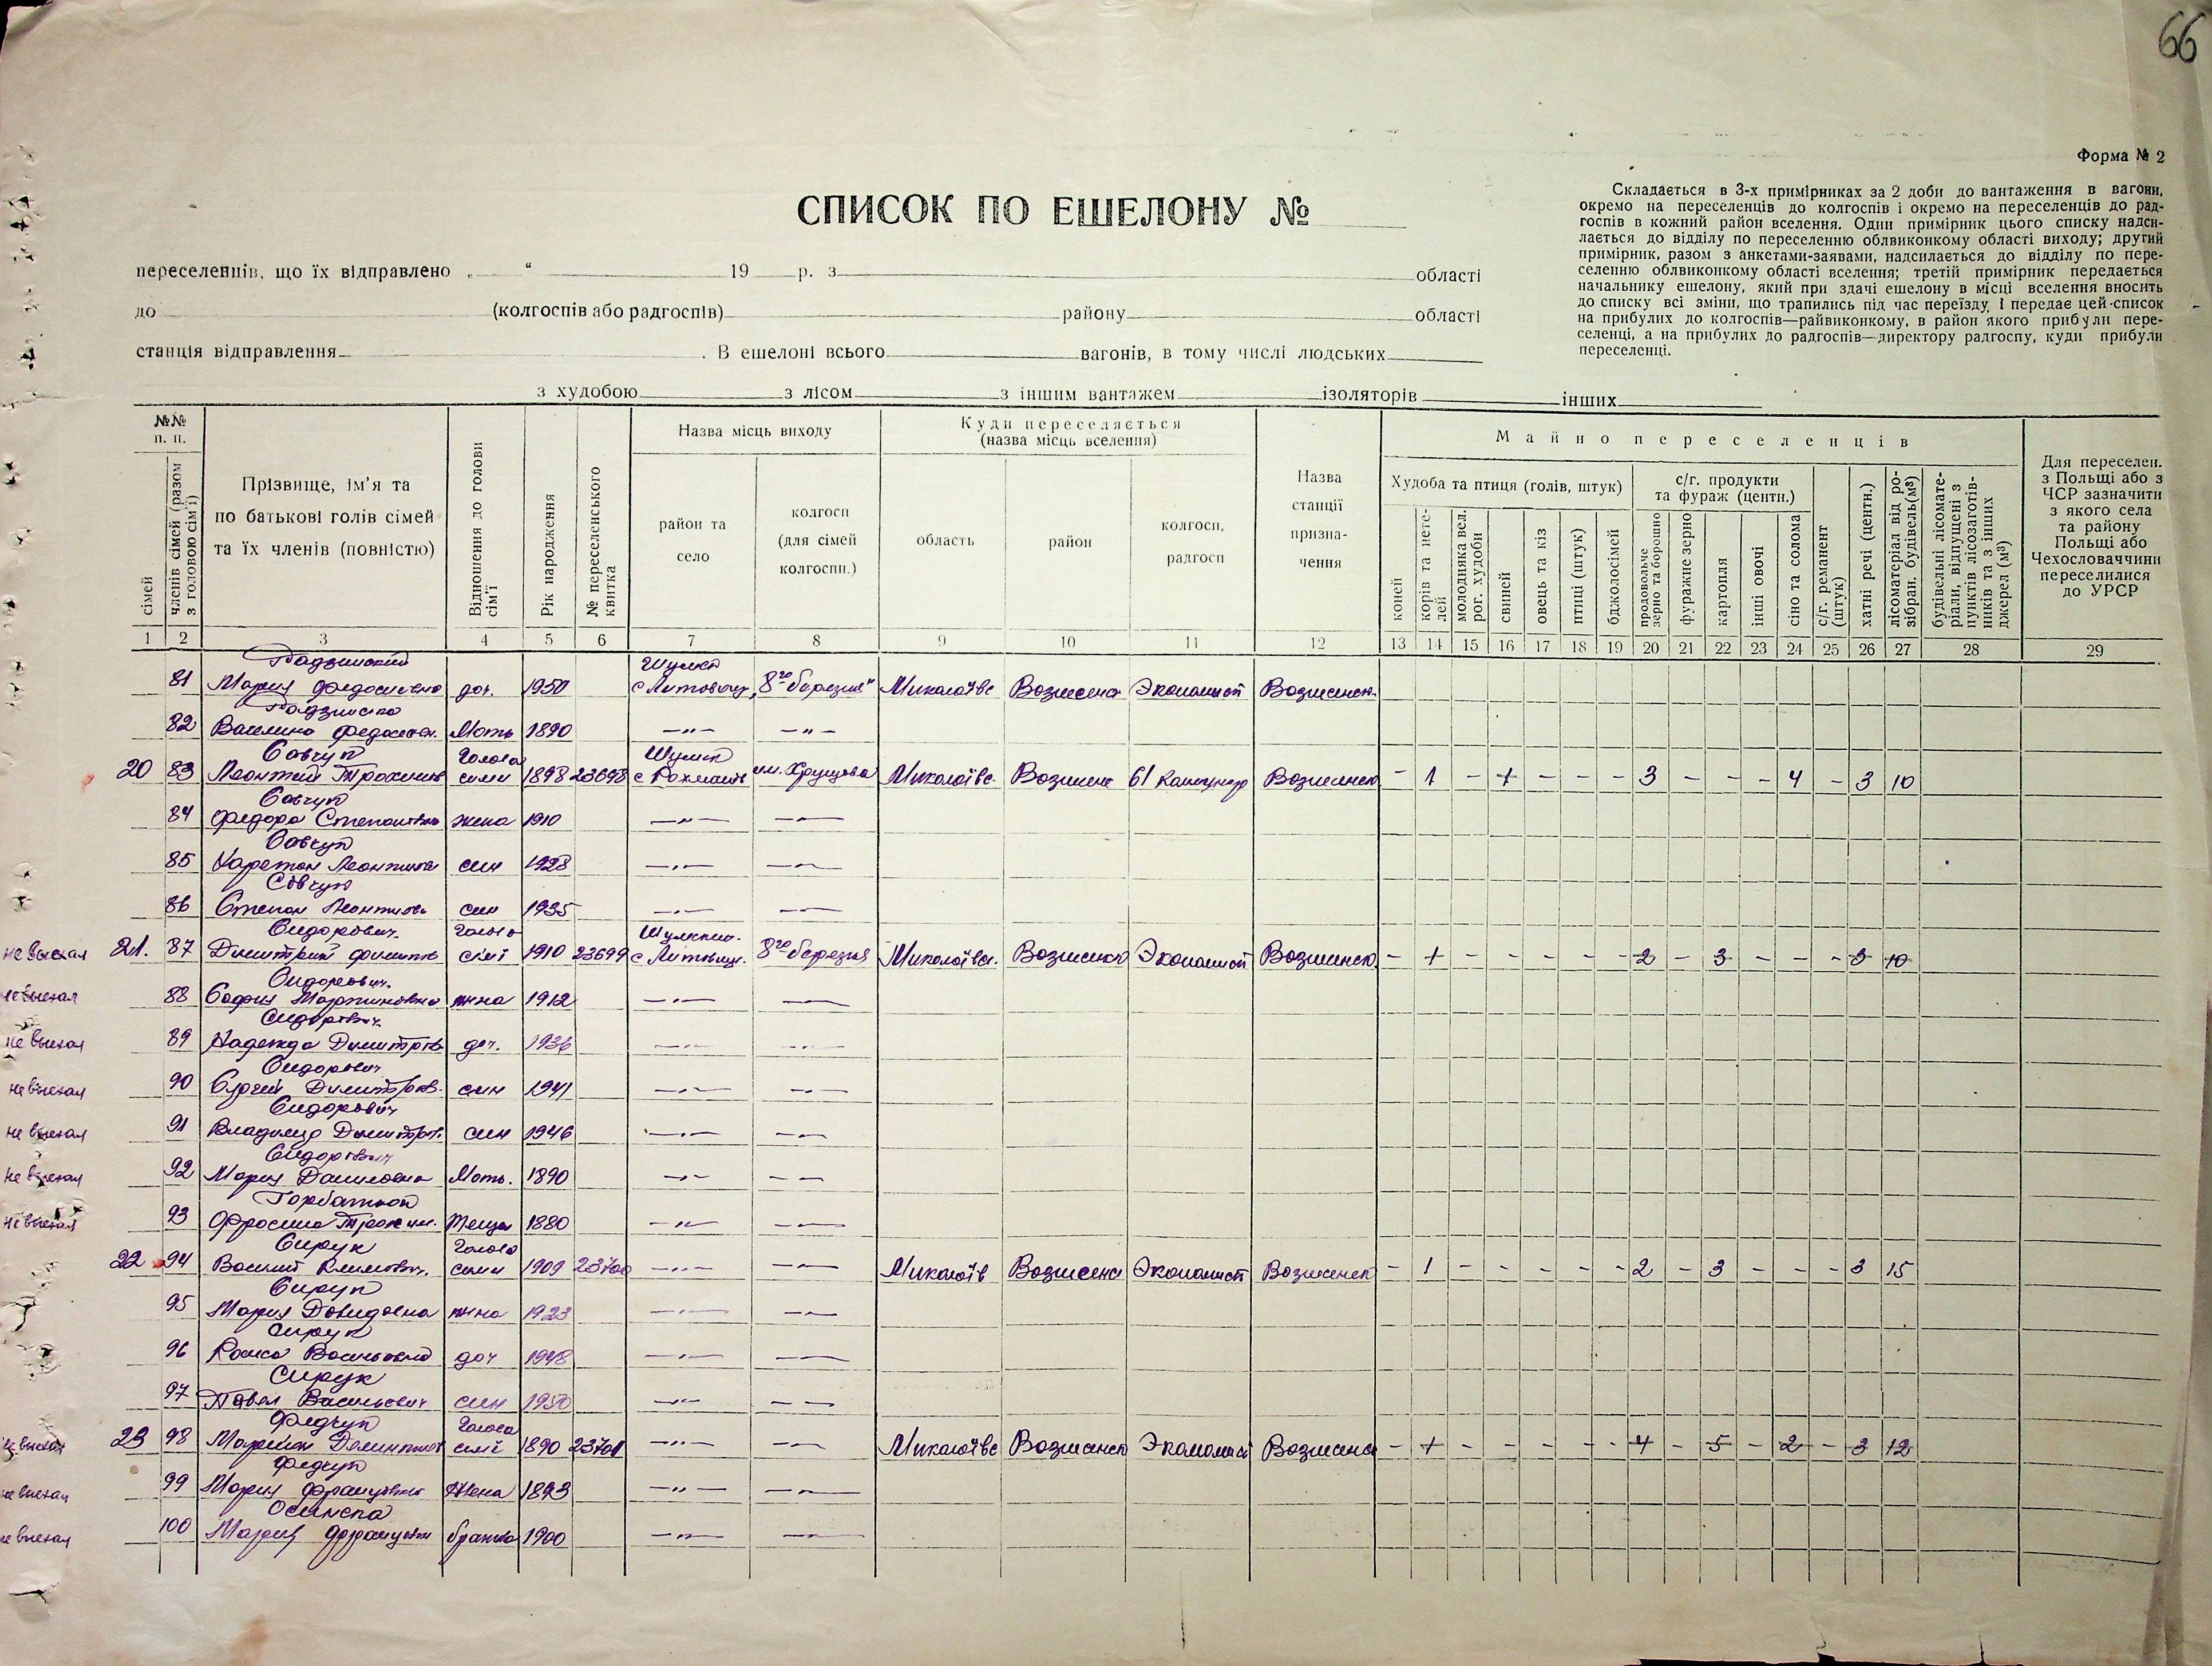 66
Форма № 2
СПИСОК ПО ЕШЕЛОНУ №
Складається в 3-х примірниках за 2 доби до вантаження в вагони,
окремо на переселенців до колгоспів і окремо на переселенців до рад-
госпів в кожний район вселення. Один примірник цього списку надси-
лається до відділу по переселенню облвиконкому області виходу; другий
примірник, разом з анкетами-заявами, надсилається до відділу по пере-
селенню облвиконкому області вселення; третій примірник передається
начальнику ешелону, який при здачі ешелону в місці вселення вносить
до списку всі зміни, що трапились під час переїзду, і передає цей список
на прибулих до колгоспів—райвиконкому, в район якого прибули пере-
селенці, а на прибулих до радгоспів—директору радгоспу, куди прибули
переселенці.
переселенців, що їх відправлено „ “ 19 р. з області
до (колгоспів або радгоспів) району області
станція відправлення . В ешелоні всього вагонів, в тому числі людських
з худобою з лісом з іншим вантажем ізоляторів інших
№№ п. п.
сімей
членів сімей (разом з головою сім'ї)
Прізвище, ім'я та
по батькові голів сімей
та їх членів (повністю)
Відношення до голови сім'ї
Рік народження
№ переселенського квитка
Назва місць виходу
район та
село
колгосп
(для сімей
колгоспн.)
Куди переселяється
(назва місць вселення)
область
район
колгосп,
радгосп
Назва
станції
призна-
чення
Майно переселенців
Худоба та птиця (голів, штук)
коней
корів та нете-
лей
молодняка вел.
рог. худоби
свиней
овець та кіз
птиці (штук)
бджолосімей
с/г. продукти
та фураж (центн.)
продовольче
зерно та борошно
фуражне зерно
картопля
інші овочі
сіно та солома
с/г. реманент
(штук)
хатні речі (центн.)
лісоматеріал від ро-
зібран. будівель (м³)
будівельні лісомате-
ріали, відпущені з
пунктів лісозаготів-
ників та з інших
джерел (м³)
Для переселен.
з Польщі або з
ЧСР зазначити
з якого села
та району
Польщі або
Чехословаччини
переселилися
до УРСР
1 2 3 4 5 6 7 8 9 10 11 12 13 14 15 16 17 18 19 20 21 22 23 24 25 26 27 28 29
81 Мария доч. 1950 8го березня Миколаївс Вознесенс Экономист Вознесенск
82 Мать 1890 —„— —„—
Савчук Голова
20 83 Леонтий Трохимов сими 1898 23698 им. Хрущова Миколаївс. Вознесенс 61 Вознесенск - 1 - 1 - - - 3 - - - 4 - 3 10
Савчук
84 Федора Степановна жена 1910 —„— —„—
Савчук
85 Харетон Леонтиев син 1928 —„— —„—
Савчук
86 Степан Леонтиев син 1935 —„— —„—
Сидорович Голова
не выехал 21. 87 Димитрий сімї 1910 23699 8го березня Миколаївс. Вознесенск Экономист Вознесенск - 1 - - - - - 2 - 3 - - - 3 10
Сидорович
не выехал 88 София Мартиновна жена 1912 —„— —„—
Сидорович
не выехал 89 Надежда Димитров доч. 1936 —„— —„—
Сидорович
не выехал 90 Сергей Димитров. син 1941 —„— —„—
Сидорович
не выехал 91 Владимир Димитров. син 1946 —„— —„—
Сидорович
не выехал 92 Мария Даниловна Мать. 1890 —„— —„—
не выехал 93 теща 1880 —„— —„—
Сирук Голова
22 94 Василий Климович. сими 1909 23700 —„— —„— Миколаїв Вознесенс Экономист Вознесенск - 1 - - - - - 2 - 3 - - - 3 15
Сирук
95 Мария Давидовна жена 1923 —„— —„—
Сирук
96 Раиса Васильовна доч 1948 —„— —„—
Сирук
97 Павел Васильович син 1950 —„— —„—
Федчук Голова
не выехал 23 98 сімї 1890 23701 —„— —„— Миколаївс Вознесенск Экономист Вознесенс - 1 - - - - - 4 - 5 - 2 - 3 12
Федчук
не выехал 99 Мария Францовна Жена 1893 —„— —„—
Осинска
не выехал 100 Мария 1900 —„— —„—